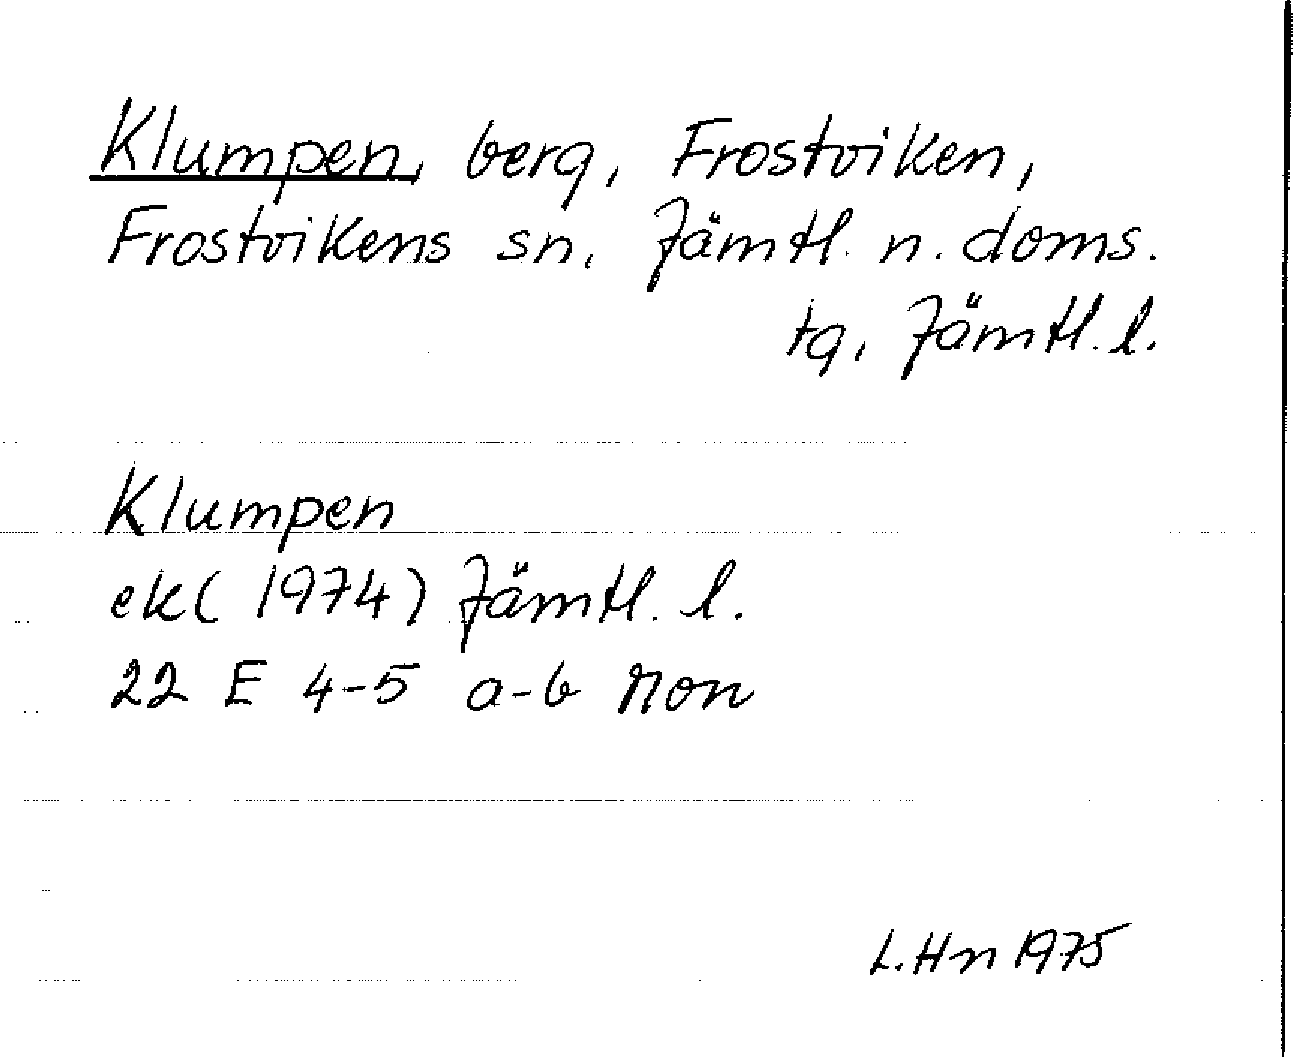 Klumpen, berg, Frostviken,
Frostvikens sn, Jämtl. n. doms.
tg, Jämtl. l.
Klumpen
ek (1974) Jämtl. l.
22 E 4-5 a-b Non
L. Hn 1975